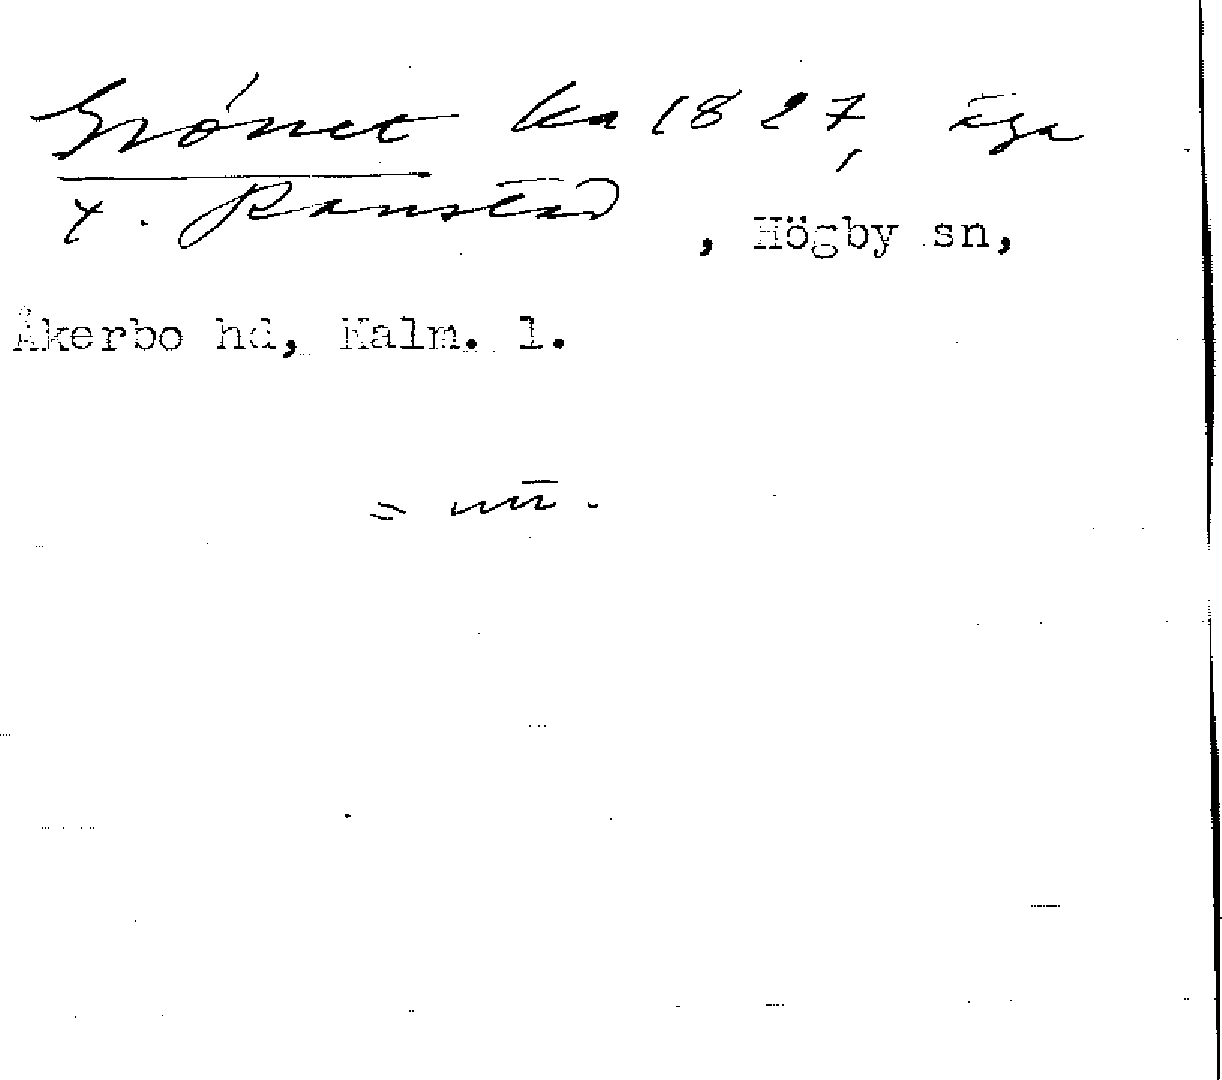 Grönet ka 1827, äga
t. Ramstad, Högby sn,
Åkerbo hd, Kalm. l.
= nu.